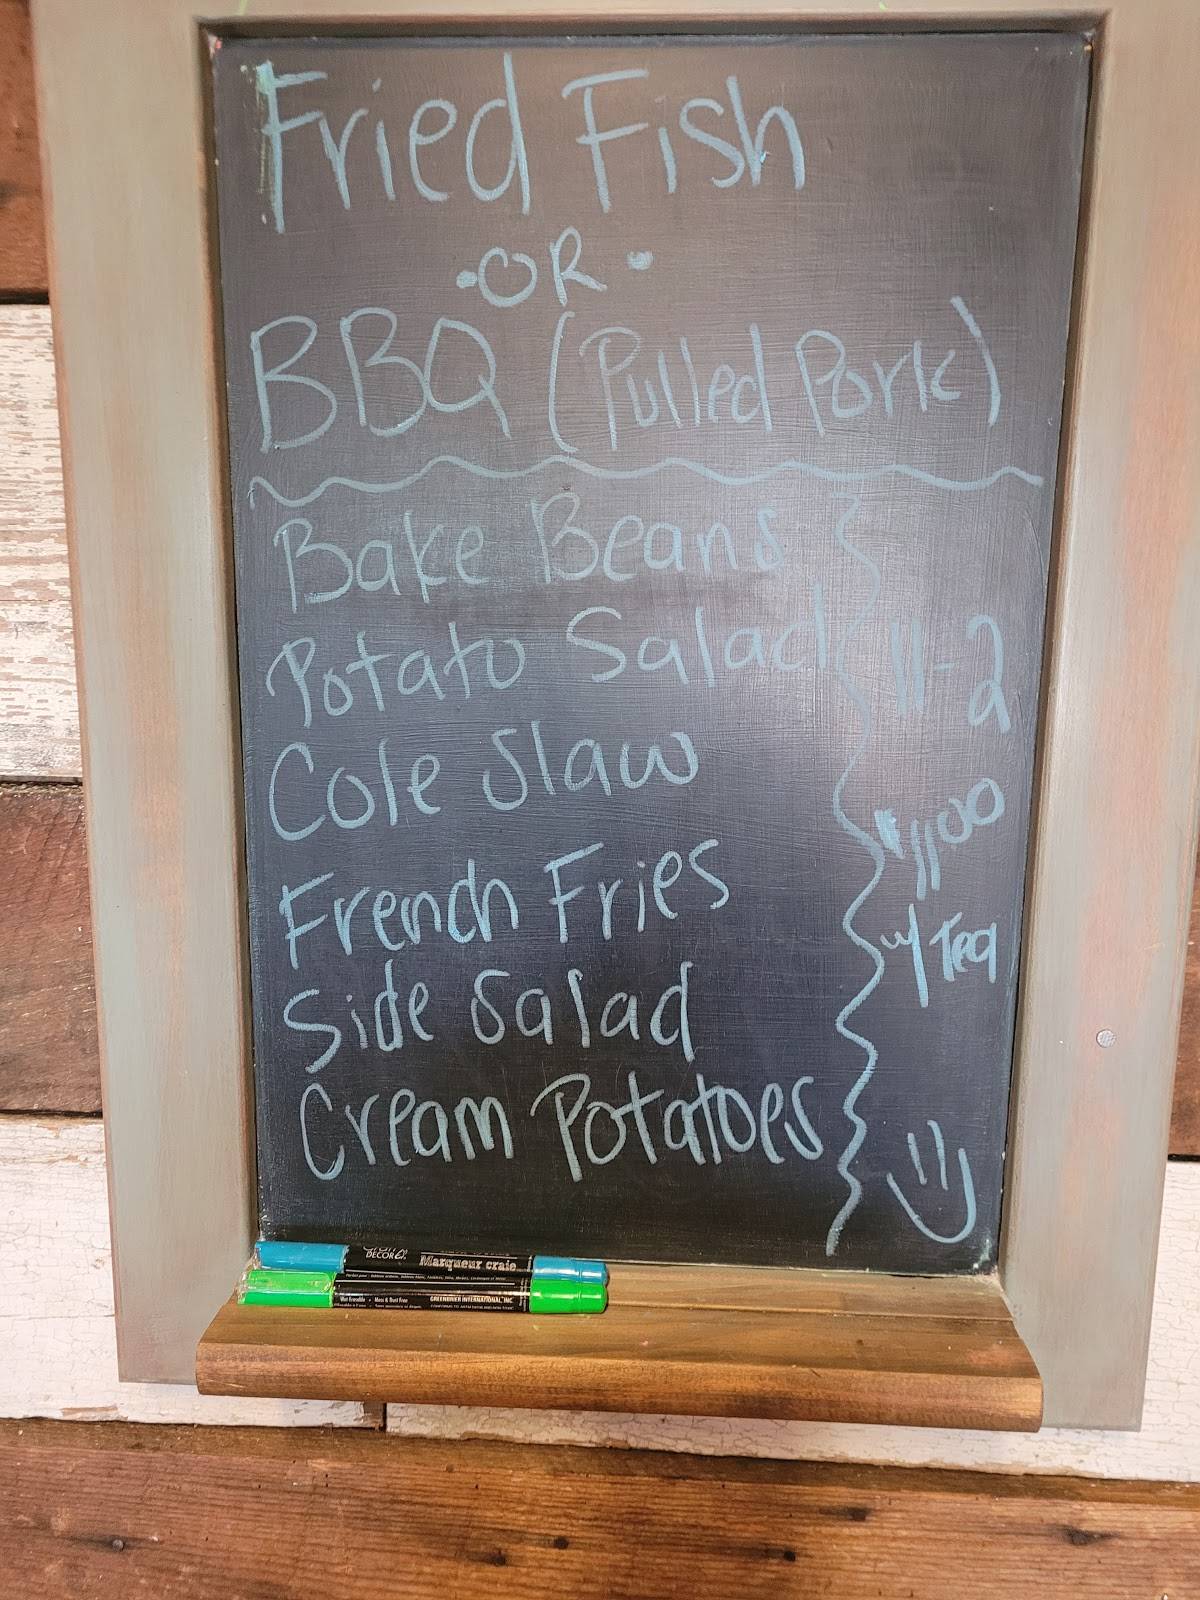 Fried Fish
•OR•
BBQ (Pulled Pork)
Bake Beans
Potato Salad
Cole Slaw
French Fries
Side Salad
Cream Potatoes
11-2
$1100
w/ Tea
DECOR
Marqueur craie
GREENBRIER INTERNATIONAL, INC.